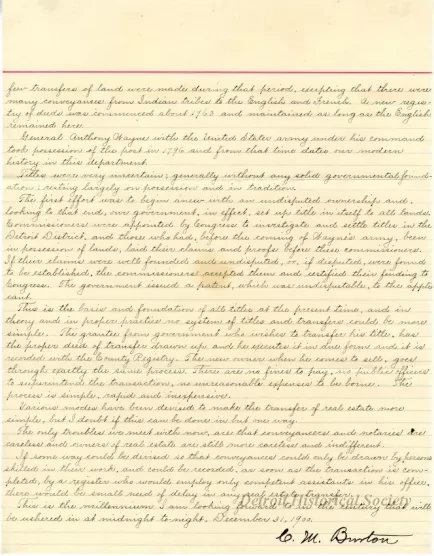 few transfers of land were made during that period, excepting that there were
many conveyances from Indian tribes to the English and French. A new regis-
try of deeds was commenced about 1763 and maintained as long as the English
remained here.
General Anthony Wayne with the United States army under his command
took possession of the post in 1796 and from that time dates our modern
history in this department.
Titles were very uncertain; generally without any solid governmental found-
ation; resting largely on possession and in tradition.
The first effort was to begin anew with an undisputed ownership and,
looking to that end, our government, in effect, set up title in itself to all lands.
Commissioners were appointed by Congress to investigate and settle titles in the
Detroit District, and those who had, before the coming of Wayne's army, been
in possession of lands, laid their claims and proofs before these commissioners.
If their claims were well founded and undisputed, or, if disputed, were found
to be established, the commissioners accepted them and certified their finding to
Congress. The government issued a patent, which was undisputable, to the appli-
cant.
This is the basis and foundation of all titles at the present time, and in
theory and in proper practice no system of titles and transfers could be more
simple. The grantee from government who wishes to transfer his title, has
the proper deed of transfer drawn up and he executes it in due form and it is
recorded with the County Registry. The new owner when he comes to sell, goes
through exactly the same process. There are no fines to pay, no public officers
to superintend the transaction, no unreasonable expenses to be borne. The
process is simple, rapid and inexpensive.
Various modes have been devised to make the transfer of real estate more
simple, but I doubt if this can be done in but one way.
The only troubles we meet with now, are that conveyancers and notaries are
careless and owners of real estate are still more careless and indifferent.
If some way could be devised so that conveyances could only be drawn by persons
skilled in their work, and could be recorded, as soon as the transaction is com-
pleted, by a register who would employ only competent assistants in his office,
there would be small need of delay in any real estate transfer.
This is the millennium I am looking forward to in the century that will
be ushered in at midnight to-night, December 31, 1900.
C. M. Burton
Detroit Historical Society